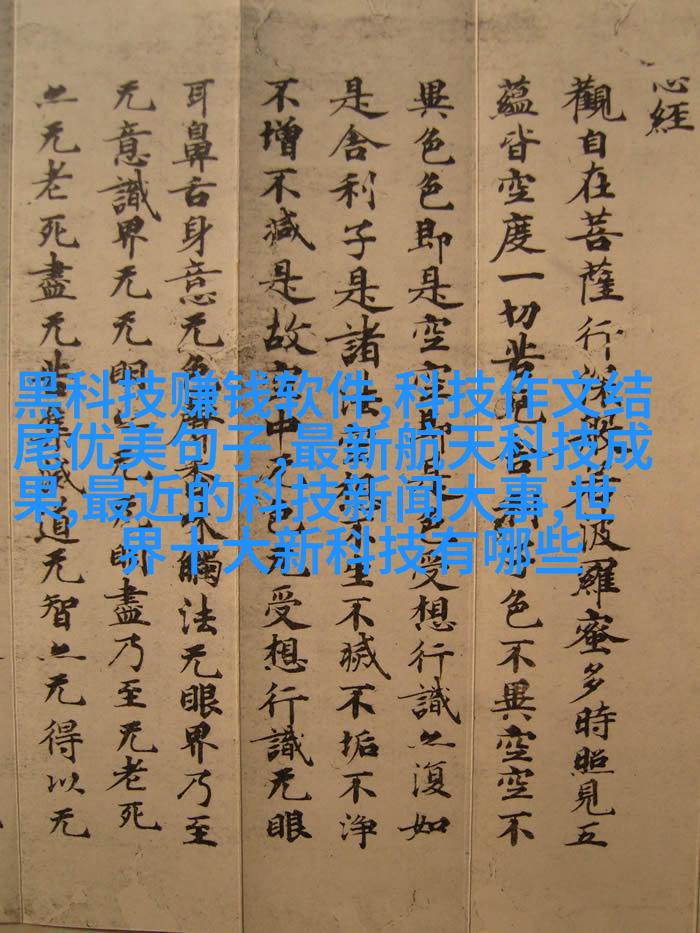 心經
觀自在菩薩行深般若波羅蜜多時照見五
蘊皆空度一切苦厄舍利子色不異空空不
異色色即是空空即是色受想行識亦復如
是舍利子是諸法空相不生不滅不垢不淨
不增不減是故空中无色无受想行識无眼
耳鼻舌身意无色聲香味觸法无眼界乃至
无意識界无无明亦无无明盡乃至无老死
亦无老死盡无苦集滅道无智亦无得以无
黑科技赚钱软件,科技作文结
尾优美句子,最新航天科技成
果,最近的科技新闻大事,世
界十大新科技有哪些